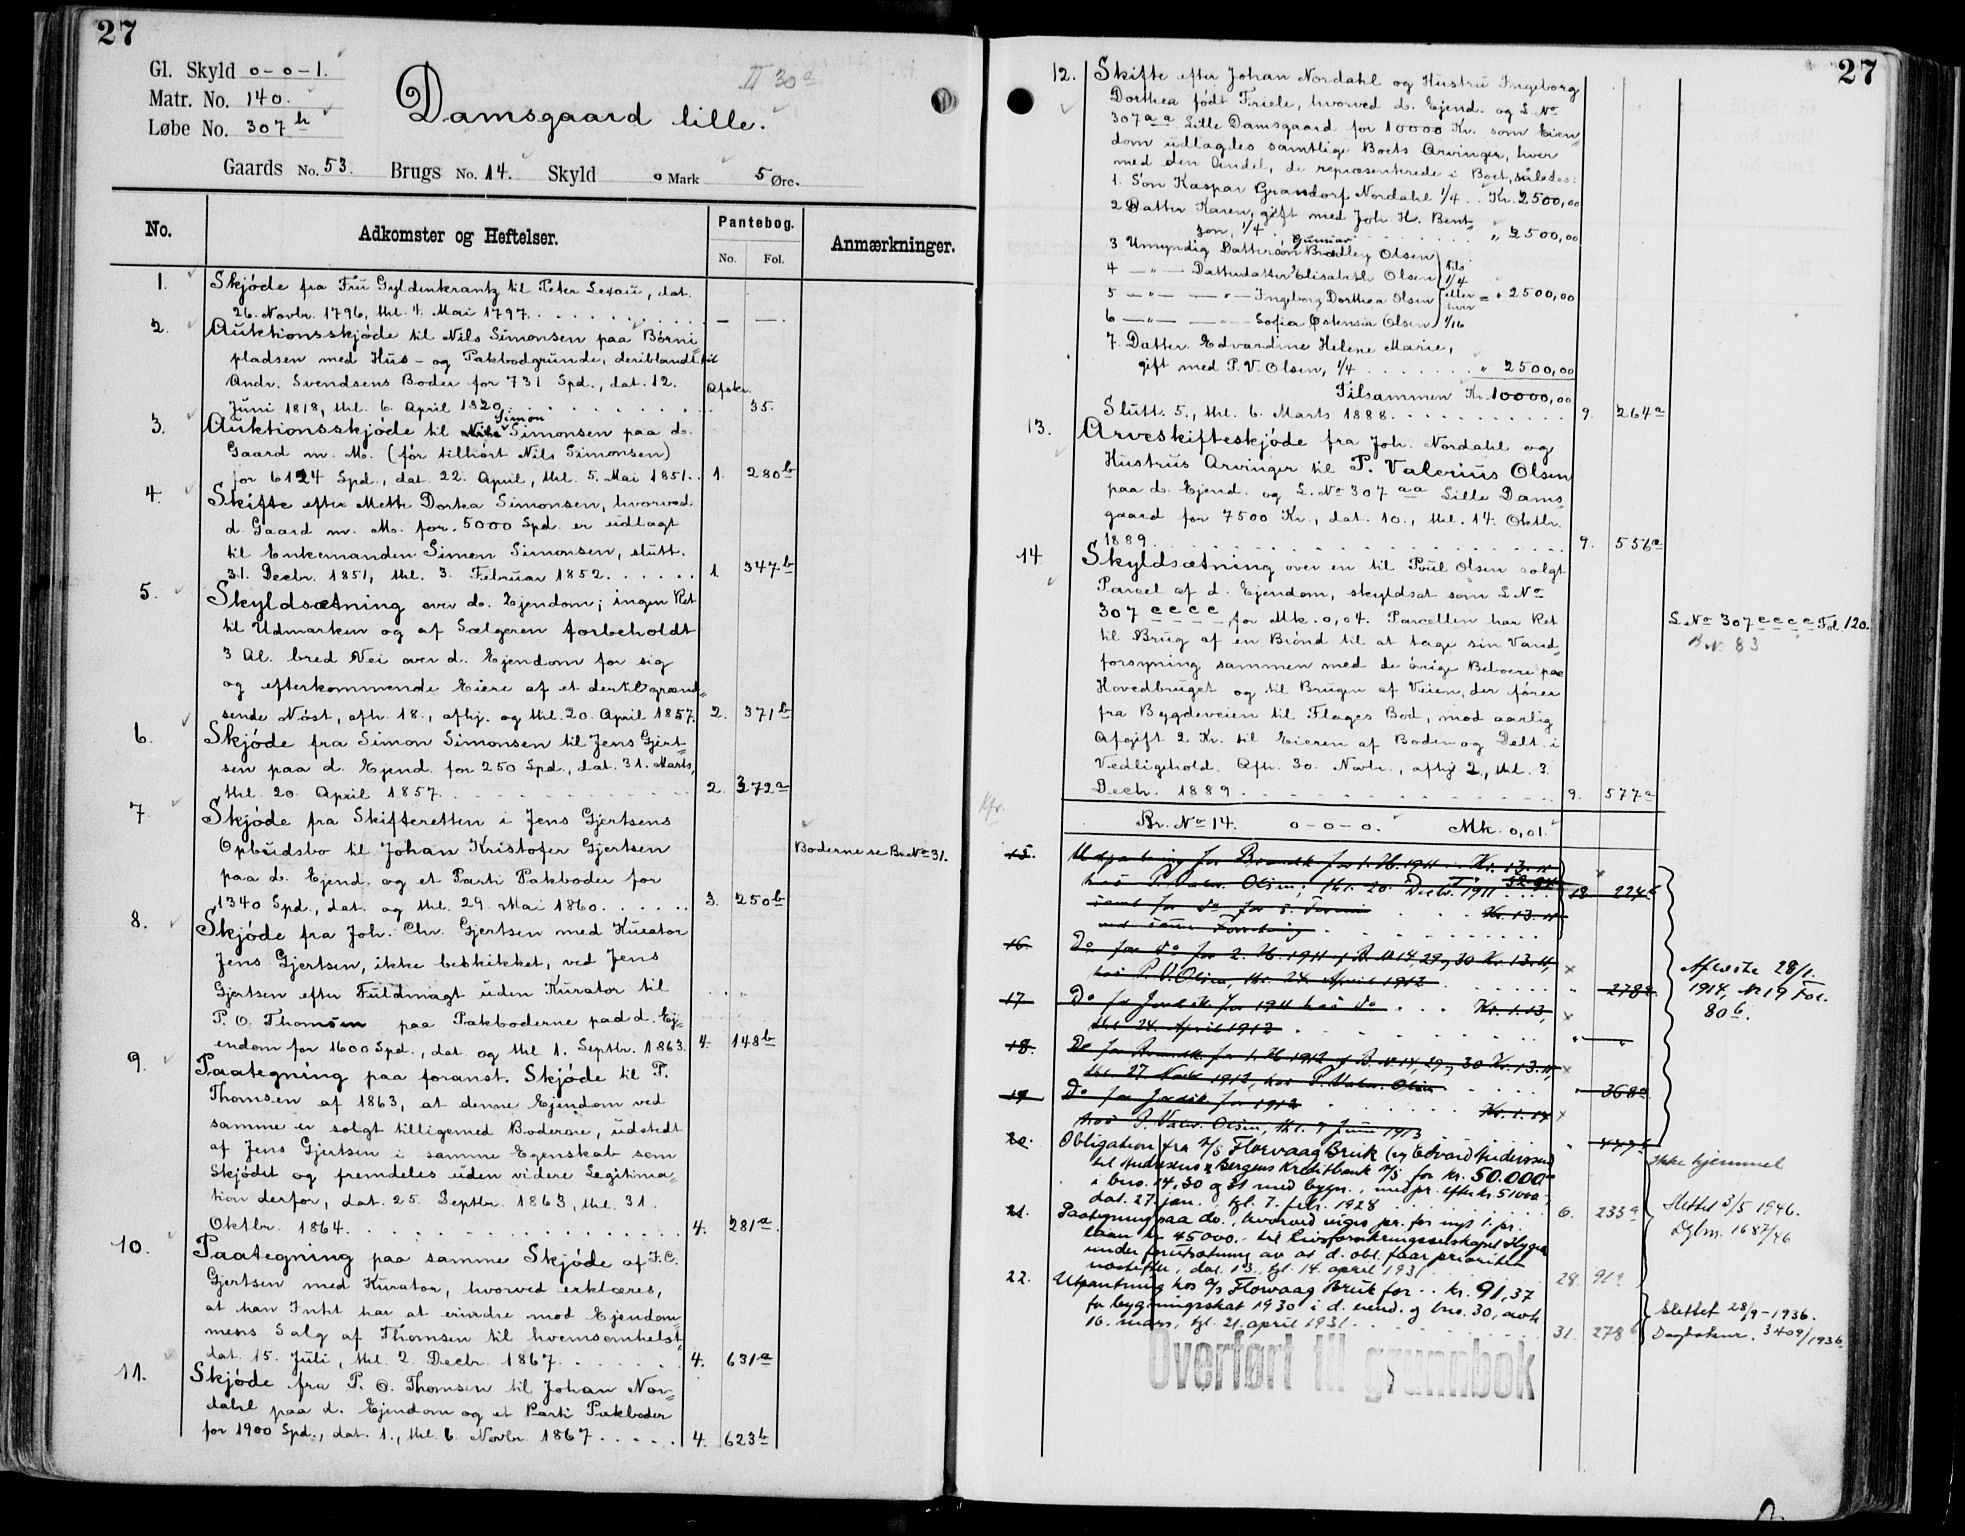 27
Gl. Skyld 0-0-1.
Matr. No. 140.
Løbe No. 307 h
II 30 a
Damsgaard lille.
Gaards No. 53. Brugs No. 14. Skyld 0 Mark 5 Øre.
No. Adkomster og Heftelser. Pantebog. Anmærkninger.
No. Fol.
1. Skjøde fra Fru Gyldenkrantz til Peter Lexau, dat.
26. Novbr. 1796, thl. 4. Mai 1797. — —
2. Auktionsskjøde til Nils Simonsen paa Børni
pladsen med Hus- og Pakbodgrunde, deriblandt til
Andr. Svendsens Boder for 731 Spd., dat. 12.
Juni 1818, thl. 6. April 1820. Afskr. 35.
3. Auktionsskjøde til Nils Simon Simonsen paa d.
Gaard m. M. (før tilhørt Nils Simonsen)
for 6124 Spd., dat. 22. April, thl. 5. Mai 1851. 1. 280 b
4. Skifte efter Mette Dortea Simonsen, hvorved
d. Gaard m. M. for 5000 Spd. er udlagt
til Enkemanden Simon Simonsen, slutt.
31. Decbr. 1851, thl. 3. Februar 1852. 1. 347 b
5. Skyldsætning over d. Ejendom; ingen Ret
til Udmarken og af Sælgeren forbeholdt
3 Al. bred Vei over d. Ejendom for sig
og efterkommende Eiere af et dertil grænd-
sende Nøst, afh. 18., afhj. og thl. 20. April 1857. 2. 371 b
6. Skjøde fra Simon Simonsen til Jens Gjert-
sen paa d. Ejend. for 250 Spd., dat. 31. Marts,
thl. 20. April 1857. 2. 372 a
7. Skjøde fra Skifteretten i Jens Gjertsens
Opbudsbo til Johan Kristofer Gjertsen
paa d. Ejend. og et Parti Pakboder for
1340 Spd., dat. og thl. 29. Mai 1860. 3. 250 b
Boderne se Br. No 31.
8. Skjøde fra Joh. Chr. Gjertsen med Kurator
Jens Gjertsen, ikke beskikket, ved Jens
Gjertsen efter Fuldmagt uden Kurator til
P. O. Thomsen paa Pakboderne paa d. Ej-
endom for 1600 Spd., dat. og thl. 1. Septbr. 1863. 4. 148 b
9. Paategning paa foranst. Skjøde til P.
Thomsen af 1863, at denne Ejendom ved
samme er solgt tilligemed Boderne, udstedt
af Jens Gjertsen i samme Egenskab som
Skjødet og fremdeles uden videre Legitima-
tion derfor, dat. 25. Septbr. 1863, thl. 31.
Oktbr. 1864. 4. 281 a
10. Paategning paa samme Skjøde af J. C.
Gjertsen med Kurator, hvorved erklæres,
at han Intet har at erindre mod Ejendom-
mens Salg af Thomsen til hvemsomhelst,
dat. 15. Juli, thl. 2. Decbr. 1867. 4. 631 a
11. Skjøde fra P. O. Thomsen til Johan Nor-
dahl paa d. Ejendom og et Parti Pakboder
for 1900 Spd., dat. 1., thl. 6. Novbr. 1867. 4. 623 b
27
12. Skifte efter Johan Nordahl og Hustru Ingeborg
Dorthea født Friele, hvorved d. Ejend. og L. No
307 aa Lille Damsgaard for 10000 Kr. som Eien-
dom udlagdes samtlige Boets Arvinger, hver
med den Andel, de repræsenterede i Boet, således:
1. Søn Kaspar Grandorf Nordahl 1/4 . . Kr. 2500,00
2 Datter Karen, gift med Joh. H. Bent-
zon, 1/4 " 2500,00
3 Umyndig Dattersøn Gunnar Bradley Olsen
4 — " — Datterdatter Elisabeth Olsen tils. 1/4
5 — " — — " — Ingeborg Dorthea Olsen eller = " 2500,00
6 — " — — " — Sofia Østensia Olsen hver 1/16
7. Datter Edvardine Helene Marie,
gift med P. V. Olsen, 1/4 " 2500,00
Tilsammen Kr. 10000,00
Slutt. 5., thl. 6. Marts 1888. 9. 264 a
13. Arveskifteskjøde fra Joh. Nordahl og
Hustrus Arvinger til P. Valerius Olsen
paa d. Ejend. og L. No 307 aa Lille Dams-
gaard for 7500 Kr., dat. 10., thl. 14. Oktbr.
1889. 9. 556 a
14 Skyldsætning over en til Poul Olsen solgt
Parcel af d. Ejendom, skyldsat som L No
307 eeee for Mk. 0,04. Parcellen har Ret
til Brug af en Brønd til at tage sin Vand-
forsyning sammen med de øvrige Beboere paa
Hovedbruget og til Brugen af Veien, der fører
fra Bygdeveien til Flages Bod, mod aarlig
Afgift 2 Kr. til Eieren af Boden og Delt. i
Vedligehold. Afh. 30. Novbr., afhj. 2., thl. 3.
Decbr. 1889. 9. 577 a
L No 307 eeee Fol. 120.
B. N. 83
Br. No 14. 0-0-0. Mk. 0,01.
15. Udpantning for Brandk. for 1. H. 1911 Kr. 13.11
hos P. Valer. Olsen, thl. 20. Decbr. 1911 18 224 b
samt for do for 5. Termin Kr. 13.11
16. Do for do for 2. H. 1911 af B. N 14, 29 og 30 Kr. 13.11,
hos P. V. Olsen, thl. 24. April 1912 " 278 a
17 Do for Jordsk. for 1911 hos do Kr. 1.13,
thl. 24. April 1912 " — "
18. Do for Brandk. for 1. H. 1912 af B. N 14, 29 og 30 Kr. 13.11,
thl. 27. Novbr. 1912, hos P. Valer. Olsen " 368 a
19 Do for Jordsk. for 1912 Kr. 1.14
hos P. Valer. Olsen, thl. 9 Juni 1913
Aflæste 28/1.
1914, N 19 Fol.
80 b.
20. Obligation fra A/S Florvaag Bruk (og Edvard Anderssen)
til Andresens & Bergens Kreditbank A/S for kr. 50.000.-
i bno. 14, 30 og 31 med bygn., med pr. efter kr. 51000.-
dat. 27. jan., tgl. 7. febr. 1928 6. 233 a
Ikke hjemmel
21. Paategning paa do., hvorved viges pr. for nyt 1. pr.
laan kr. 45000.- til Livsforsikringsselskapet Hygea
under forutsætning av at d. obl. faar prioritet
næstefter, dat. 13., tgl. 14. april 1931 28. 91 a
Slettet 3/5 1946.
Dgbnr. 1687/46
22. Utpantning hos A/S Florvaag Bruk for . . kr. 91,37
for bygningsskat 1930 i d. eiend. og bno. 30, avh.
16. mars, tgl. 21. april 1931. 31. 278 b
Slettet 28/9-1936.
Dagboknr. 3409/1936.
Overført til grunnbok